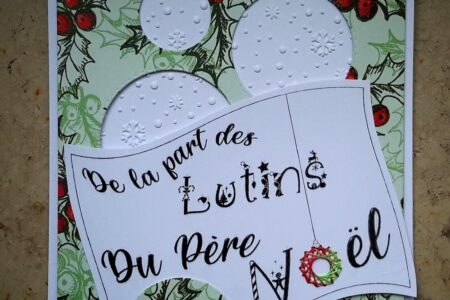 De la part des
Lutins
Du Père
Noël